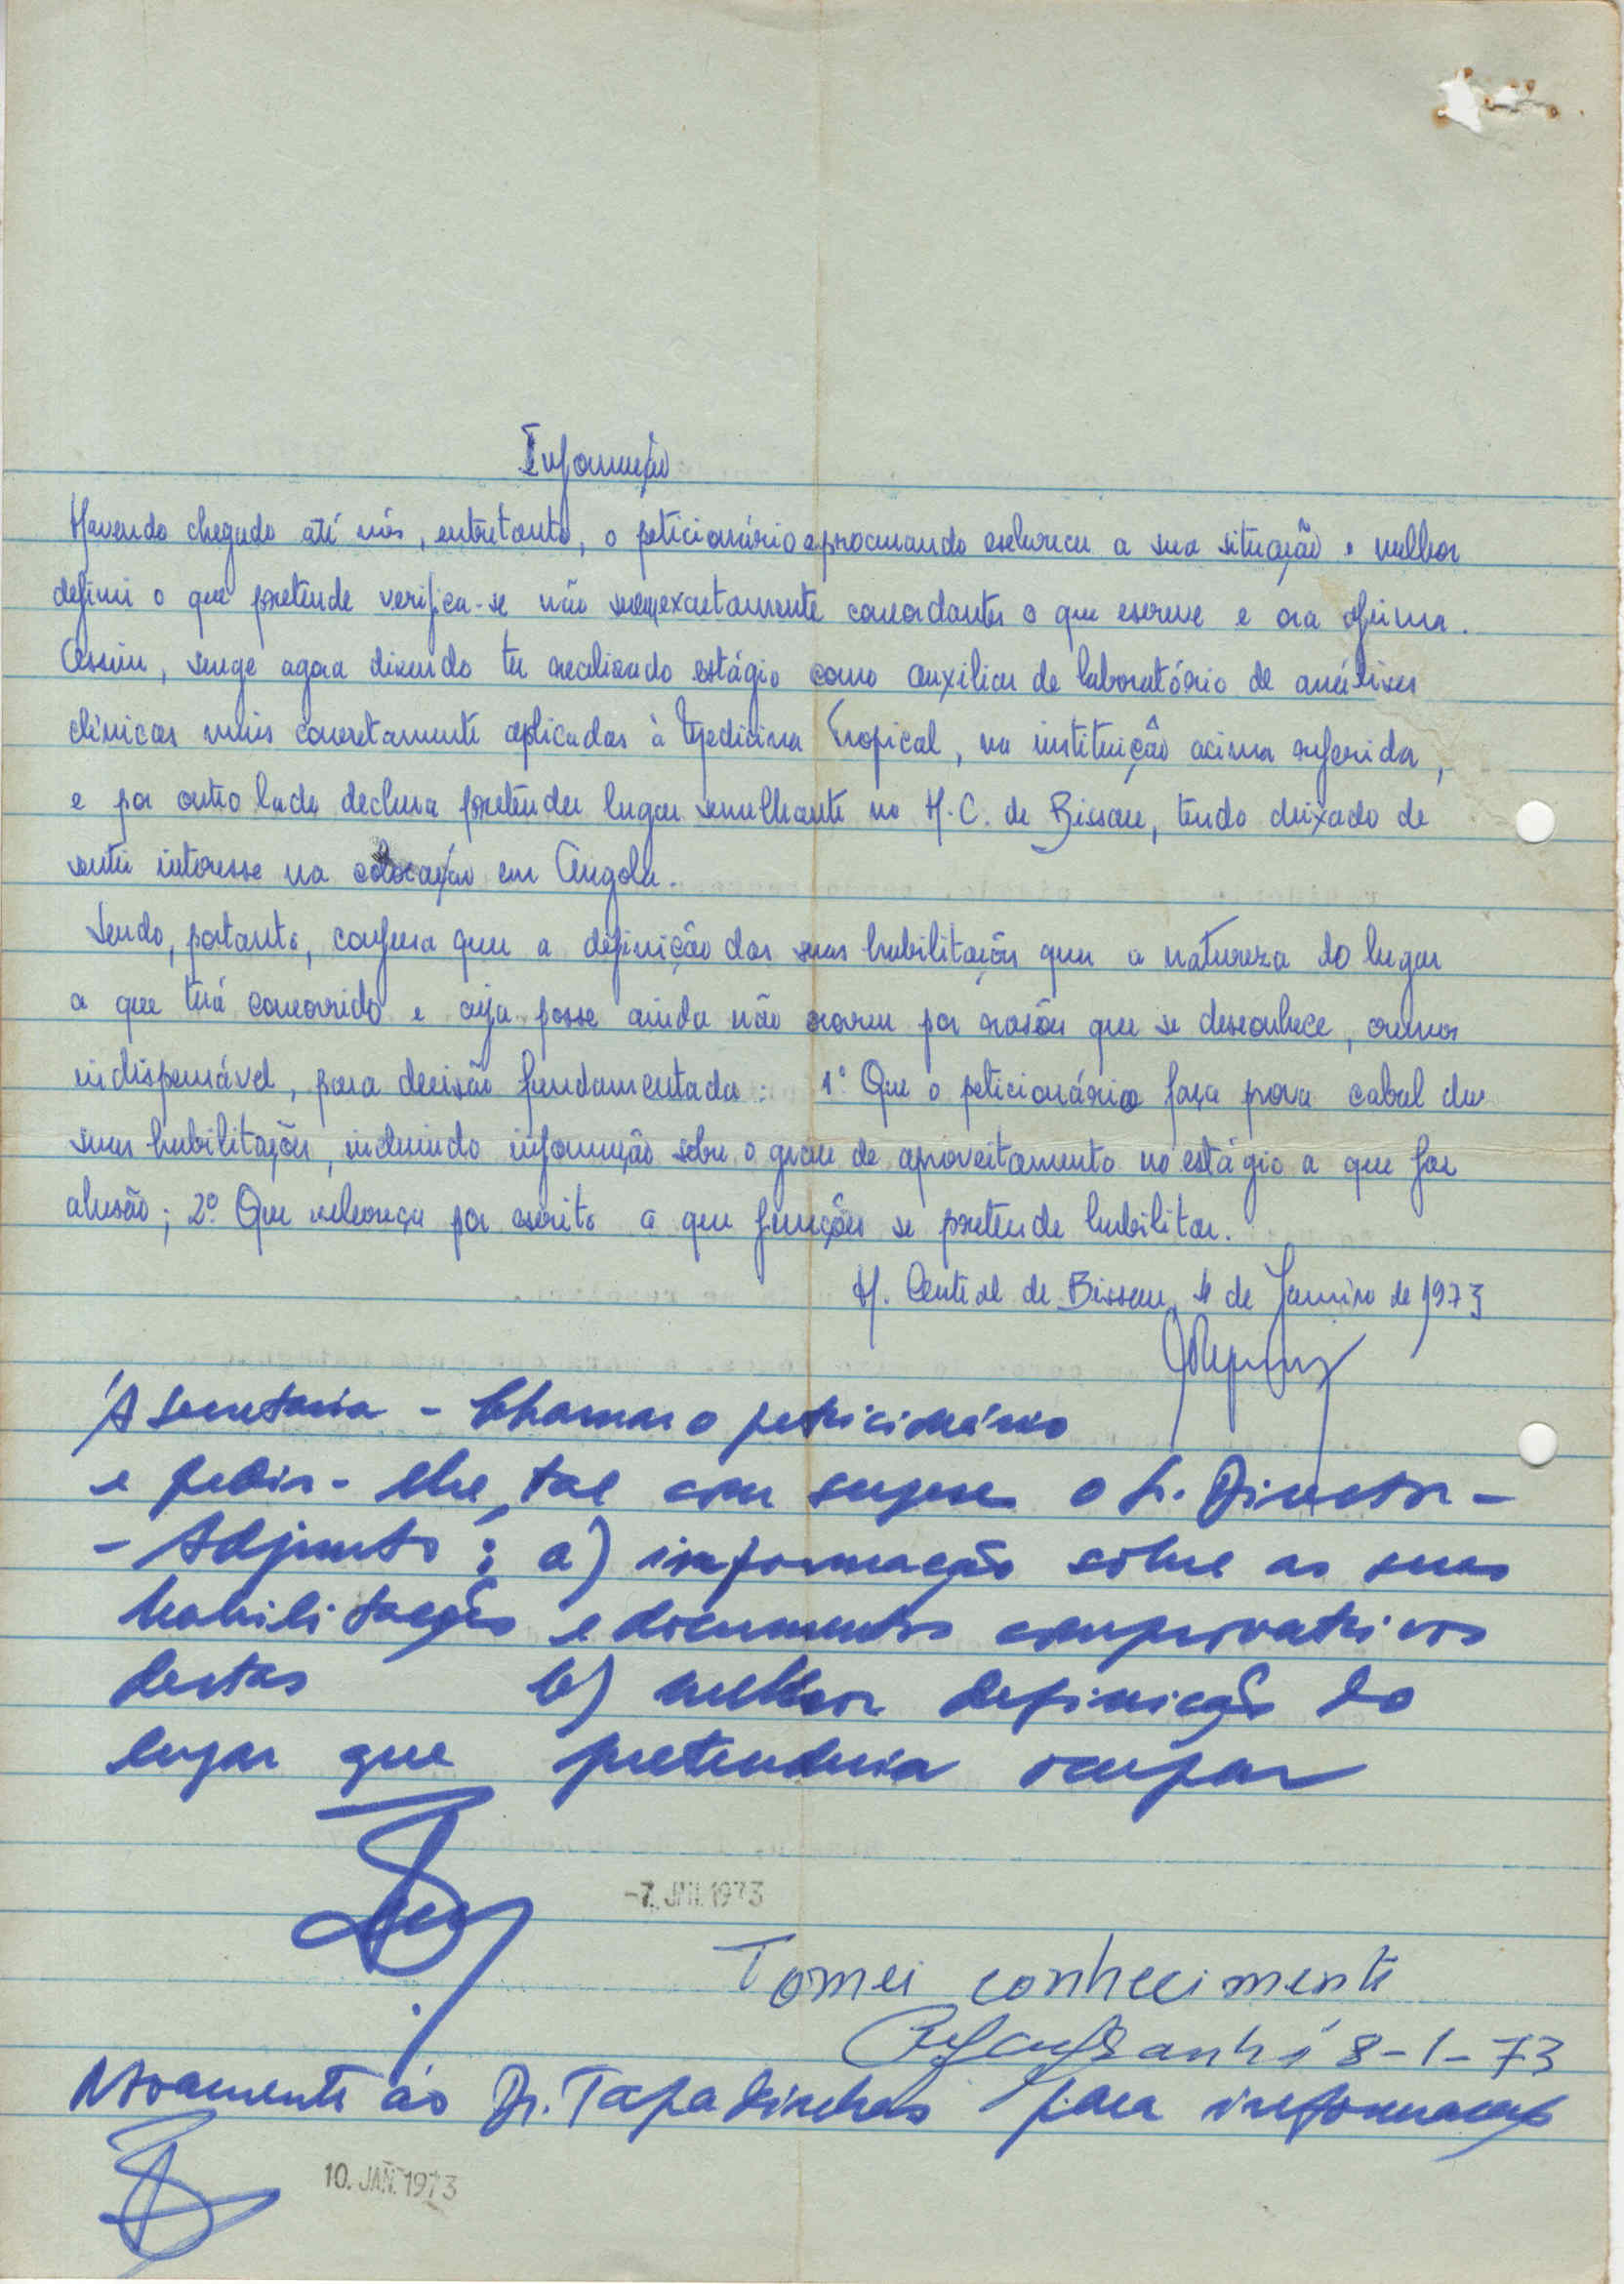 Informação
Havendo chegado até nós, entretanto, o peticionário e procurando esclarecer a sua situação e melhor
definir o que pretende verifica-se não serem exactamente concordantes o que escreve e ora afirma.
Assim, surge agora dizendo ter realizado estágio como auxiliar de laboratório de análises
clínicas mais concretamente aplicadas à Medicina Tropical, na instituição acima referida,
e por outro lado declara pretender lugar semelhante no H. C. de Bissau, tendo deixado de
sentir interesse na colocação em Angola.
Sendo, portanto, confusa quer a definição das suas habilitações quer a natureza do lugar
a que terá concorrido e cuja posse ainda não ocorreu por razões que se desconhece, cremos
indispensável, para decisão fundamentada: 1º Que o peticionário faça prova cabal das
suas habilitações, incluindo informação sobre o grau de aproveitamento no estágio a que faz
alusão; 2º Que esclareça por escrito a que funções se pretende habilitar.
H. Central de Bissau, 4 de Janeiro de 1973
À Secretaria - Chamar o peticionário
e pedir-lhe, tal como sugere o Sr. Director-
- Adjunto: a) informação sobre as suas
habilitações e documentos comprovativos
destas b) melhor definição do
lugar que pretenderia ocupar
-7. JAN. 1973
Tomei conhecimento
8-1-73
Novamente ao Dr. Tapadinhas para informação
10. JAN. 1973